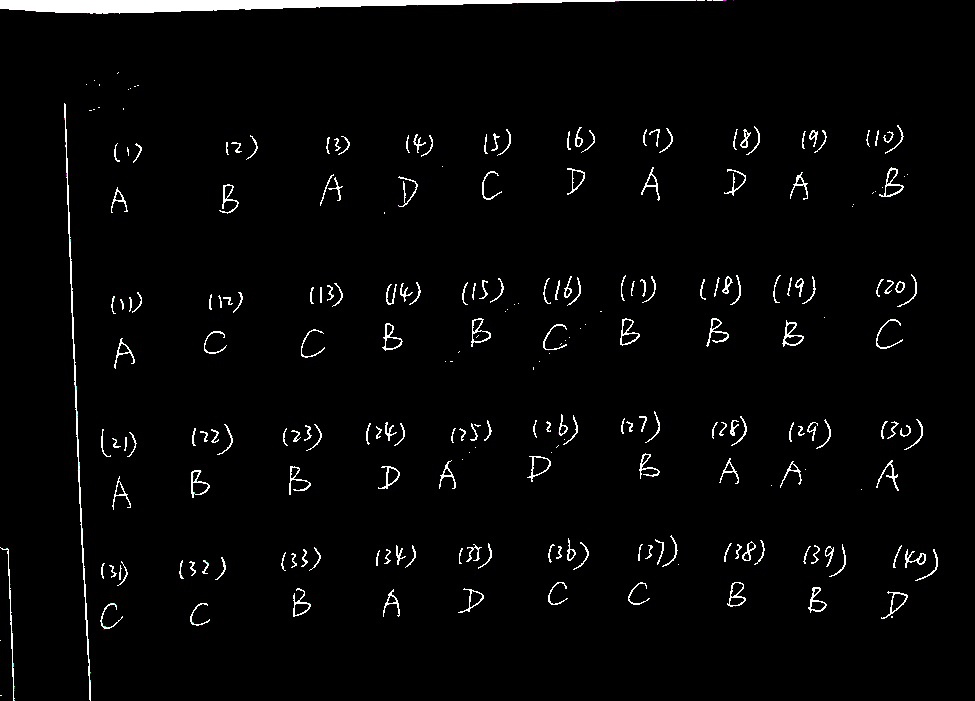 (1) (2) (3) (4) (5) (6) (7) (8) (9) (10)
A B A D C D A D A B
(11) (12) (13) (14) (15) (16) (17) (18) (19) (20)
A C C B B C B B B C
(21) (22) (23) (24) (25) (26) (27) (28) (29) (30)
A B B D A D B A A A
(31) (32) (33) (34) (35) (36) (37) (38) (39) (40)
C C B A D C C B B D